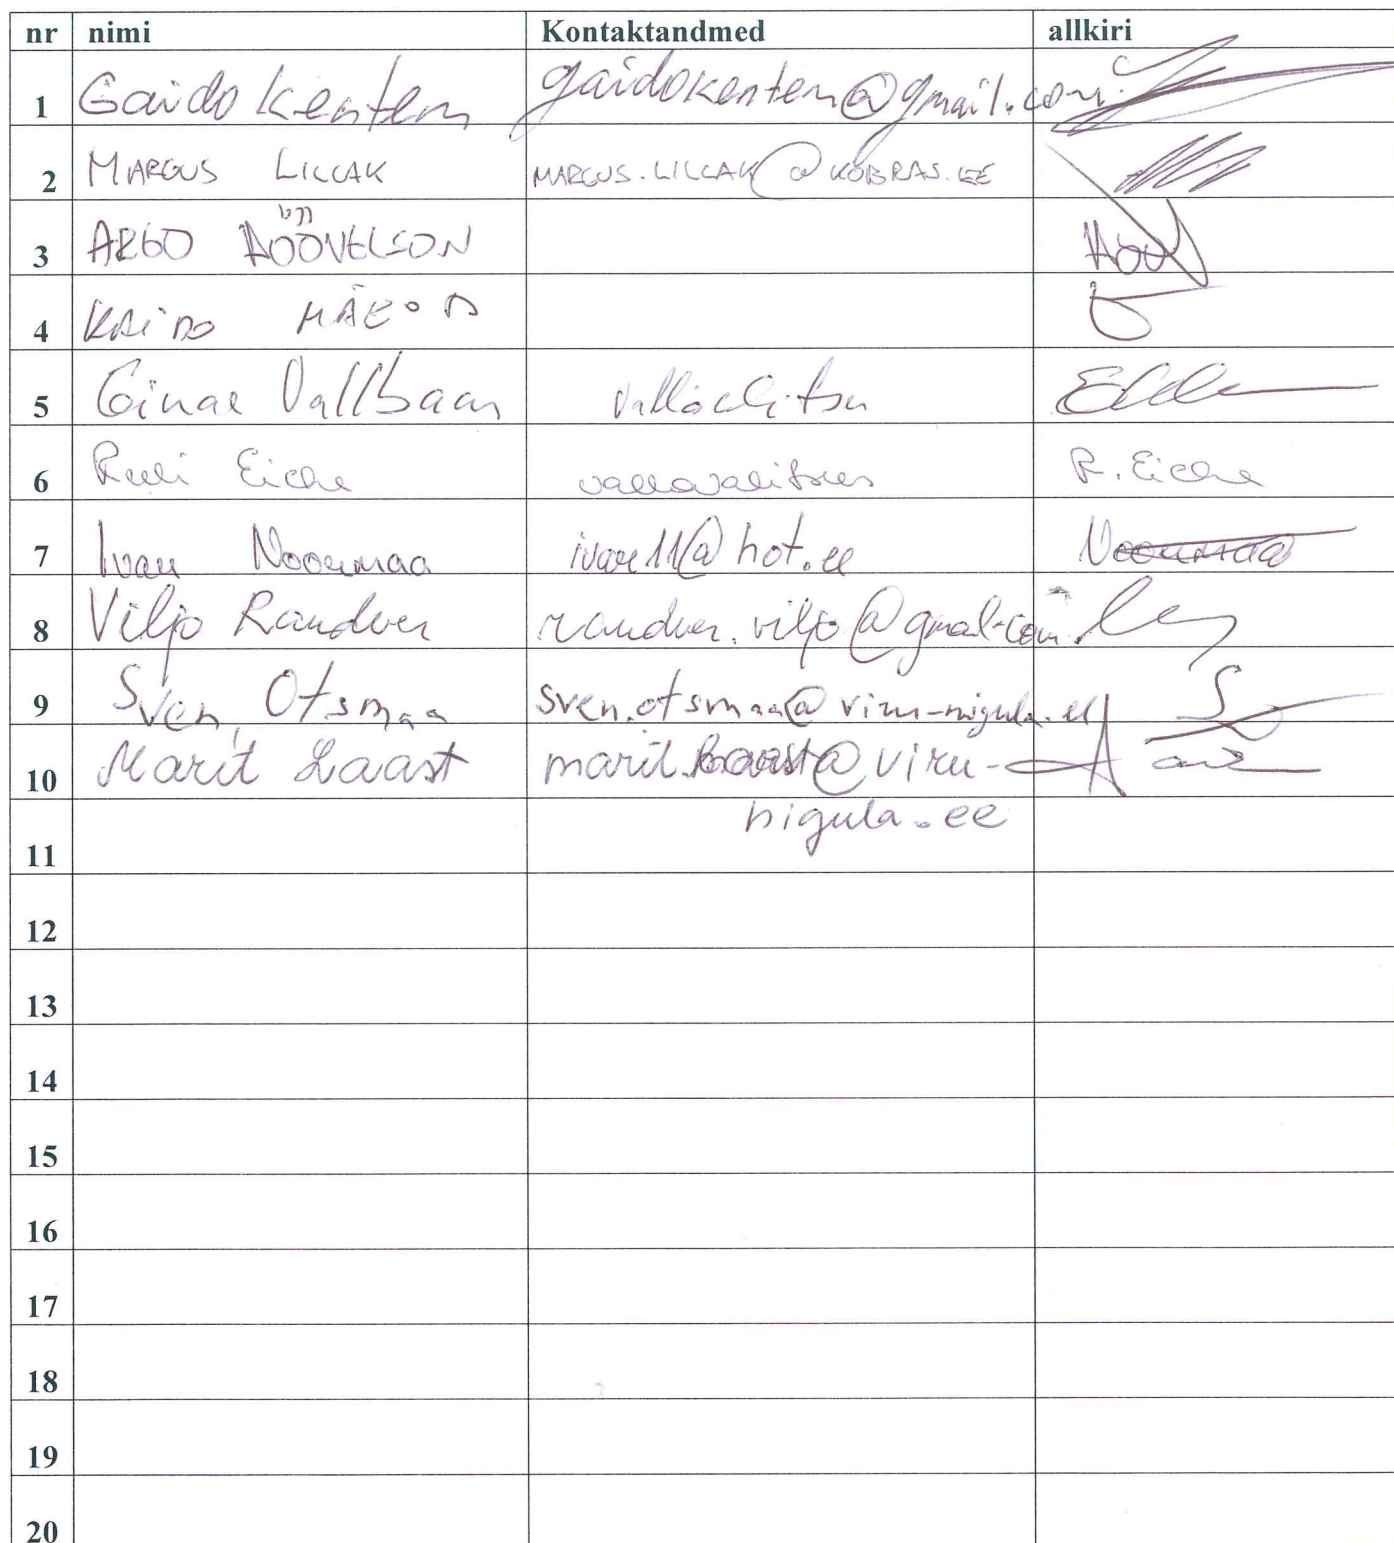 nr nimi Kontaktandmed allkiri
1 Gaido Kentem gaidokentem@gmail.com
2 MARGUS LILLAK MARGUS.LILLAK@KOBRAS.EE
3 ARGO
4 KAIDO
5 Einar Vallbaum vallavalitsus
6 Ruli Eiche vallavalitsus R. Eiche
7 Ivar Noormaa ivar11@hot.ee Noormaa
8 Viljo Randver randver.viljo@gmail.com
9 Sven Otsmaa sven.otsmaa@viru-nigula.ee
10 Marit Laast marit.laast@viru-
nigula.ee
11
12
13
14
15
16
17
18
19
20